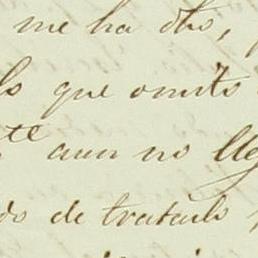 me ha dho,
que omito
te aun no lleg
do de tratarlo